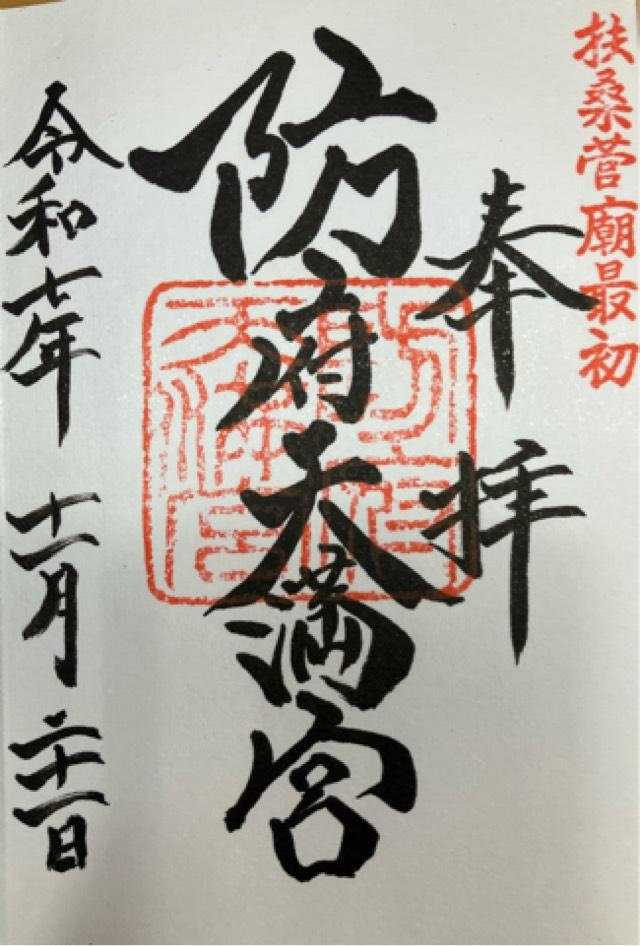 扶桑菅廟最初
奉拝
防府天満宮
令和七年十一月二十一日